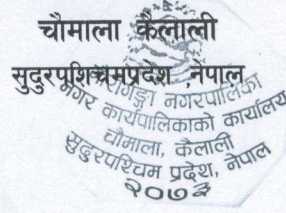 चौमाला कैलाली
सुदुरपशिचमप्रदेश ,नेपाल
नगरपालिका
नगर कार्यपालिकाको कार्यालय
चौमाला, कैलाली
सुदुरपश्चिम प्रदेश, नेपाल
२०७३